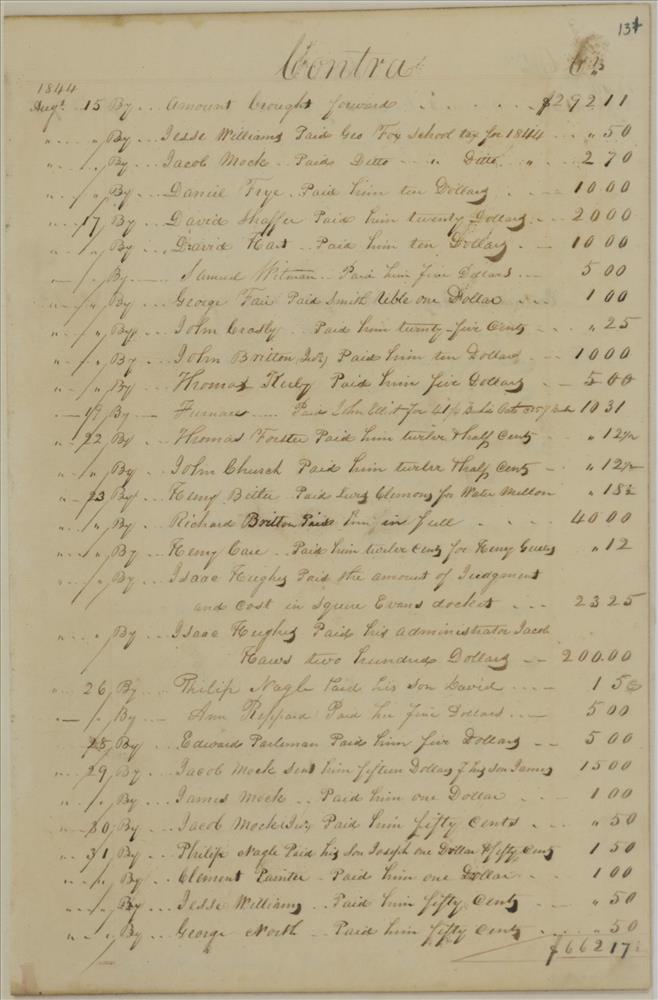 134
Contra Crs
1844
Augt 15 By ... Amount brought forward . . . . $292 11
" " By ... Jesse Williams Paid Geo Fox School tax for 1844 ... " 50
" " By ... Jacob Mock .. Paid Ditto .. " Ditto " ... 2 70
" " By ... Daniel Frye . Paid him ten Dollars ... 10 00
" 17 By ... David Shaffer Paid him twenty Dollars ... 20 00
" " By ... David Hart .. Paid him ten Dollars ... 10 00
" " By ... Samuel Witman .. Paid him five Dollars ... 5 00
" " By ... George Fair Paid Smith Uble one Dollar ... 1 00
" " By ... John Crosby .. Paid him twenty-five Cents ... " 25
" " By ... John Britton Jun Paid him ten Dollars ... 10 00
" " By ... Thomas Kirby Paid him five Dollars ... 5 00
" 19 By ... Furnace .... Paid John Elliot for 41 1/4 Bushs Oats 10 31
" 22 By ... Thomas Forster Paid him twelve & half Cents " 12 1/2
" " By ... John Church Paid him twelve & half Cents - " 12 1/2
" 23 By ... Henry Bitle .. Paid Lewis Clemons for Water Mellon " 18 3/4
" " By ... Richard Britton Paid him in full . . . . 40 00
" " By ... Henry Care .. Paid him twelve Cents for Henry " 12
" " By ... Isaac Hughes Paid the amount of Judgment
and Cost in Squire Evans docket ... 23 25
" " By ... Isaac Hughes Paid his administrator Jacob
Haws two hundred Dollars -- 200.00
" 26 By ... Philip Nagle Paid his son David ... 1 50
" " By ... Ann Reppard Paid her five Dollars ... 5 00
28 By ... Edward Parleman Paid him five Dollars -- 5 00
" 29 By ... Jacob Mock sent him fifteen Dollars p his son James 15 00
" " By ... James Mock .. Paid him one Dollar ... 1 00
" 30 By ... Jacob Mock Jun Paid him fifty Cents ... " 50
" 31 By ... Philip Nagle Paid his son Joseph one Dollar & fifty Cents 1 50
" " By ... Clement Painter - Paid him one Dollar ... 1 00
" " By ... Jesse Williams .. Paid him fifty Cents ... " 50
" " By ... George North .. Paid him fifty Cents ... " 50
$662 17